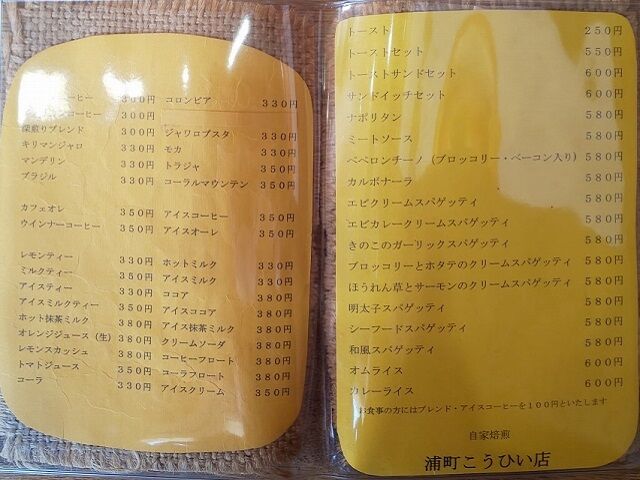 コーヒー 300円
コーヒー 300円
深煎りブレンド 300円
キリマンジャロ 330円
マンデリン 330円
ブラジル 330円
カフェオレ 350円
ウインナーコーヒー 350円
レモンティー 330円
ミルクティー 350円
アイスティー 330円
アイスミルクティー 350円
ホット抹茶ミルク 380円
オレンジジュース (生) 380円
レモンスカッシュ 380円
トマトジュース 350円
コーラ 330円
コロンビア 330円
ジャワロブスタ 330円
モカ 330円
トラジャ 350円
コーラルマウンテン 350円
アイスコーヒー 350円
アイスオーレ 350円
ホットミルク 330円
アイスミルク 330円
ココア 380円
アイスココア 380円
アイス抹茶ミルク 380円
クリームソーダ 380円
コーヒーフロート 380円
コーラフロート 380円
アイスクリーム 350円
トースト 250円
トーストセット 550円
トーストサンドセット 600円
サンドイッチセット 600円
ナポリタン 580円
ミートソース 580円
ペペロンチーノ (ブロッコリー・ベーコン入り) 580円
カルボナーラ 580円
エビクリームスパゲッティ 580円
エビカレークリームスパゲッティ 580円
きのこのガーリックスパゲッティ 580円
ブロッコリーとホタテのクリームスパゲッティ 580円
ほうれん草とサーモンのクリームスパゲッティ 580円
明太子スパゲッティ 580円
シーフードスパゲッティ 580円
和風スパゲッティ 580円
オムライス 600円
カレーライス 600円
お食事の方にはブレンド・アイスコーヒーを100円といたします
自家焙煎
浦町こうひい店